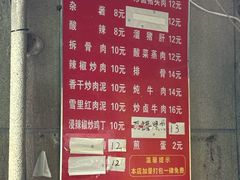 杂酱 8元 12元
酸辣 8元 溜猪肝 12元
拆骨肉 10元 酸菜蒸肉 12元
辣椒炒肉 10元 排骨 14元
香干炒肉泥 10元 烧牛肉 14元
雪里红肉泥 10元 炒卤牛肉 16元
浸辣椒炒鸡丁 10元 13
12 煎蛋 2元
12 温馨提示
本店加量打包一律免费